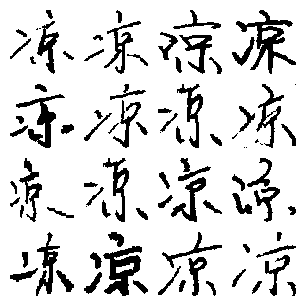 凉凉凉凉
凉凉凉凉
凉凉凉凉
凉凉凉凉